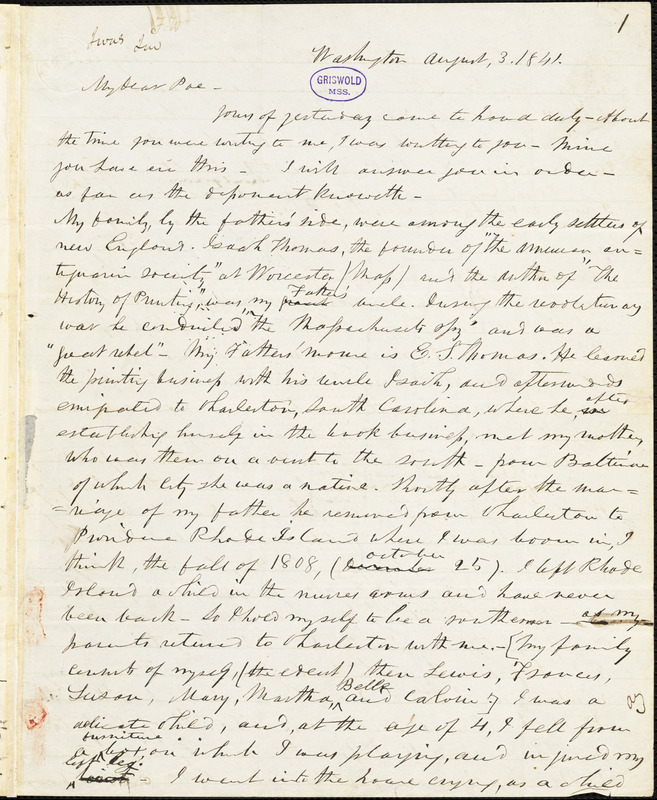 1
Washington August, 3. 1841.
GRISWOLD
MSS.
My dear Poe -
Yours of yesterday came to hand duly - About
the time you were writing to me, I was writing to you - Mine
you have ere this - I will answer you in order -
as far as the deponent knoweth -
My family, by the father's side, were among the early settlers of
new England. Isaih Thomas, the founder of "the American an=
tiquarian society" at Worcester (Mass) and the author of "The
History of Printing", was my Father's uncle. During the revolutionary
war he conducted "the Massachusetts spy" and was a
"great rebel" - My Father's name is E. S. Thomas. He learned
the printing business with his uncle Isaih, and afterwards
emigrated to Charleston, South Carolina, where he, after
establishing himself in the book business, met my mother,
who was then on a visit to the south - from Baltimore
of which city she was a native. Shortly after the mar=
=riage of my father he removed from Charleston to
Providence Rhode Island where I was boorn in, I
think, the fall of 1808, (december october 25). I left Rhode
Island a child in the nurses arms and have never
been back - So I hold myself to be a southerner - as my
parents returned to Charleston with me. - {My family
consists of myself, (the eldest) then Lewis, Frances,
Susan, Mary, Martha, Belle and Calvin} I was a
delicate child, and, at the age of 4, I fell from
furniture
a box on which I was playing, and injured my
left leg.
- I went into the house crying, as a child